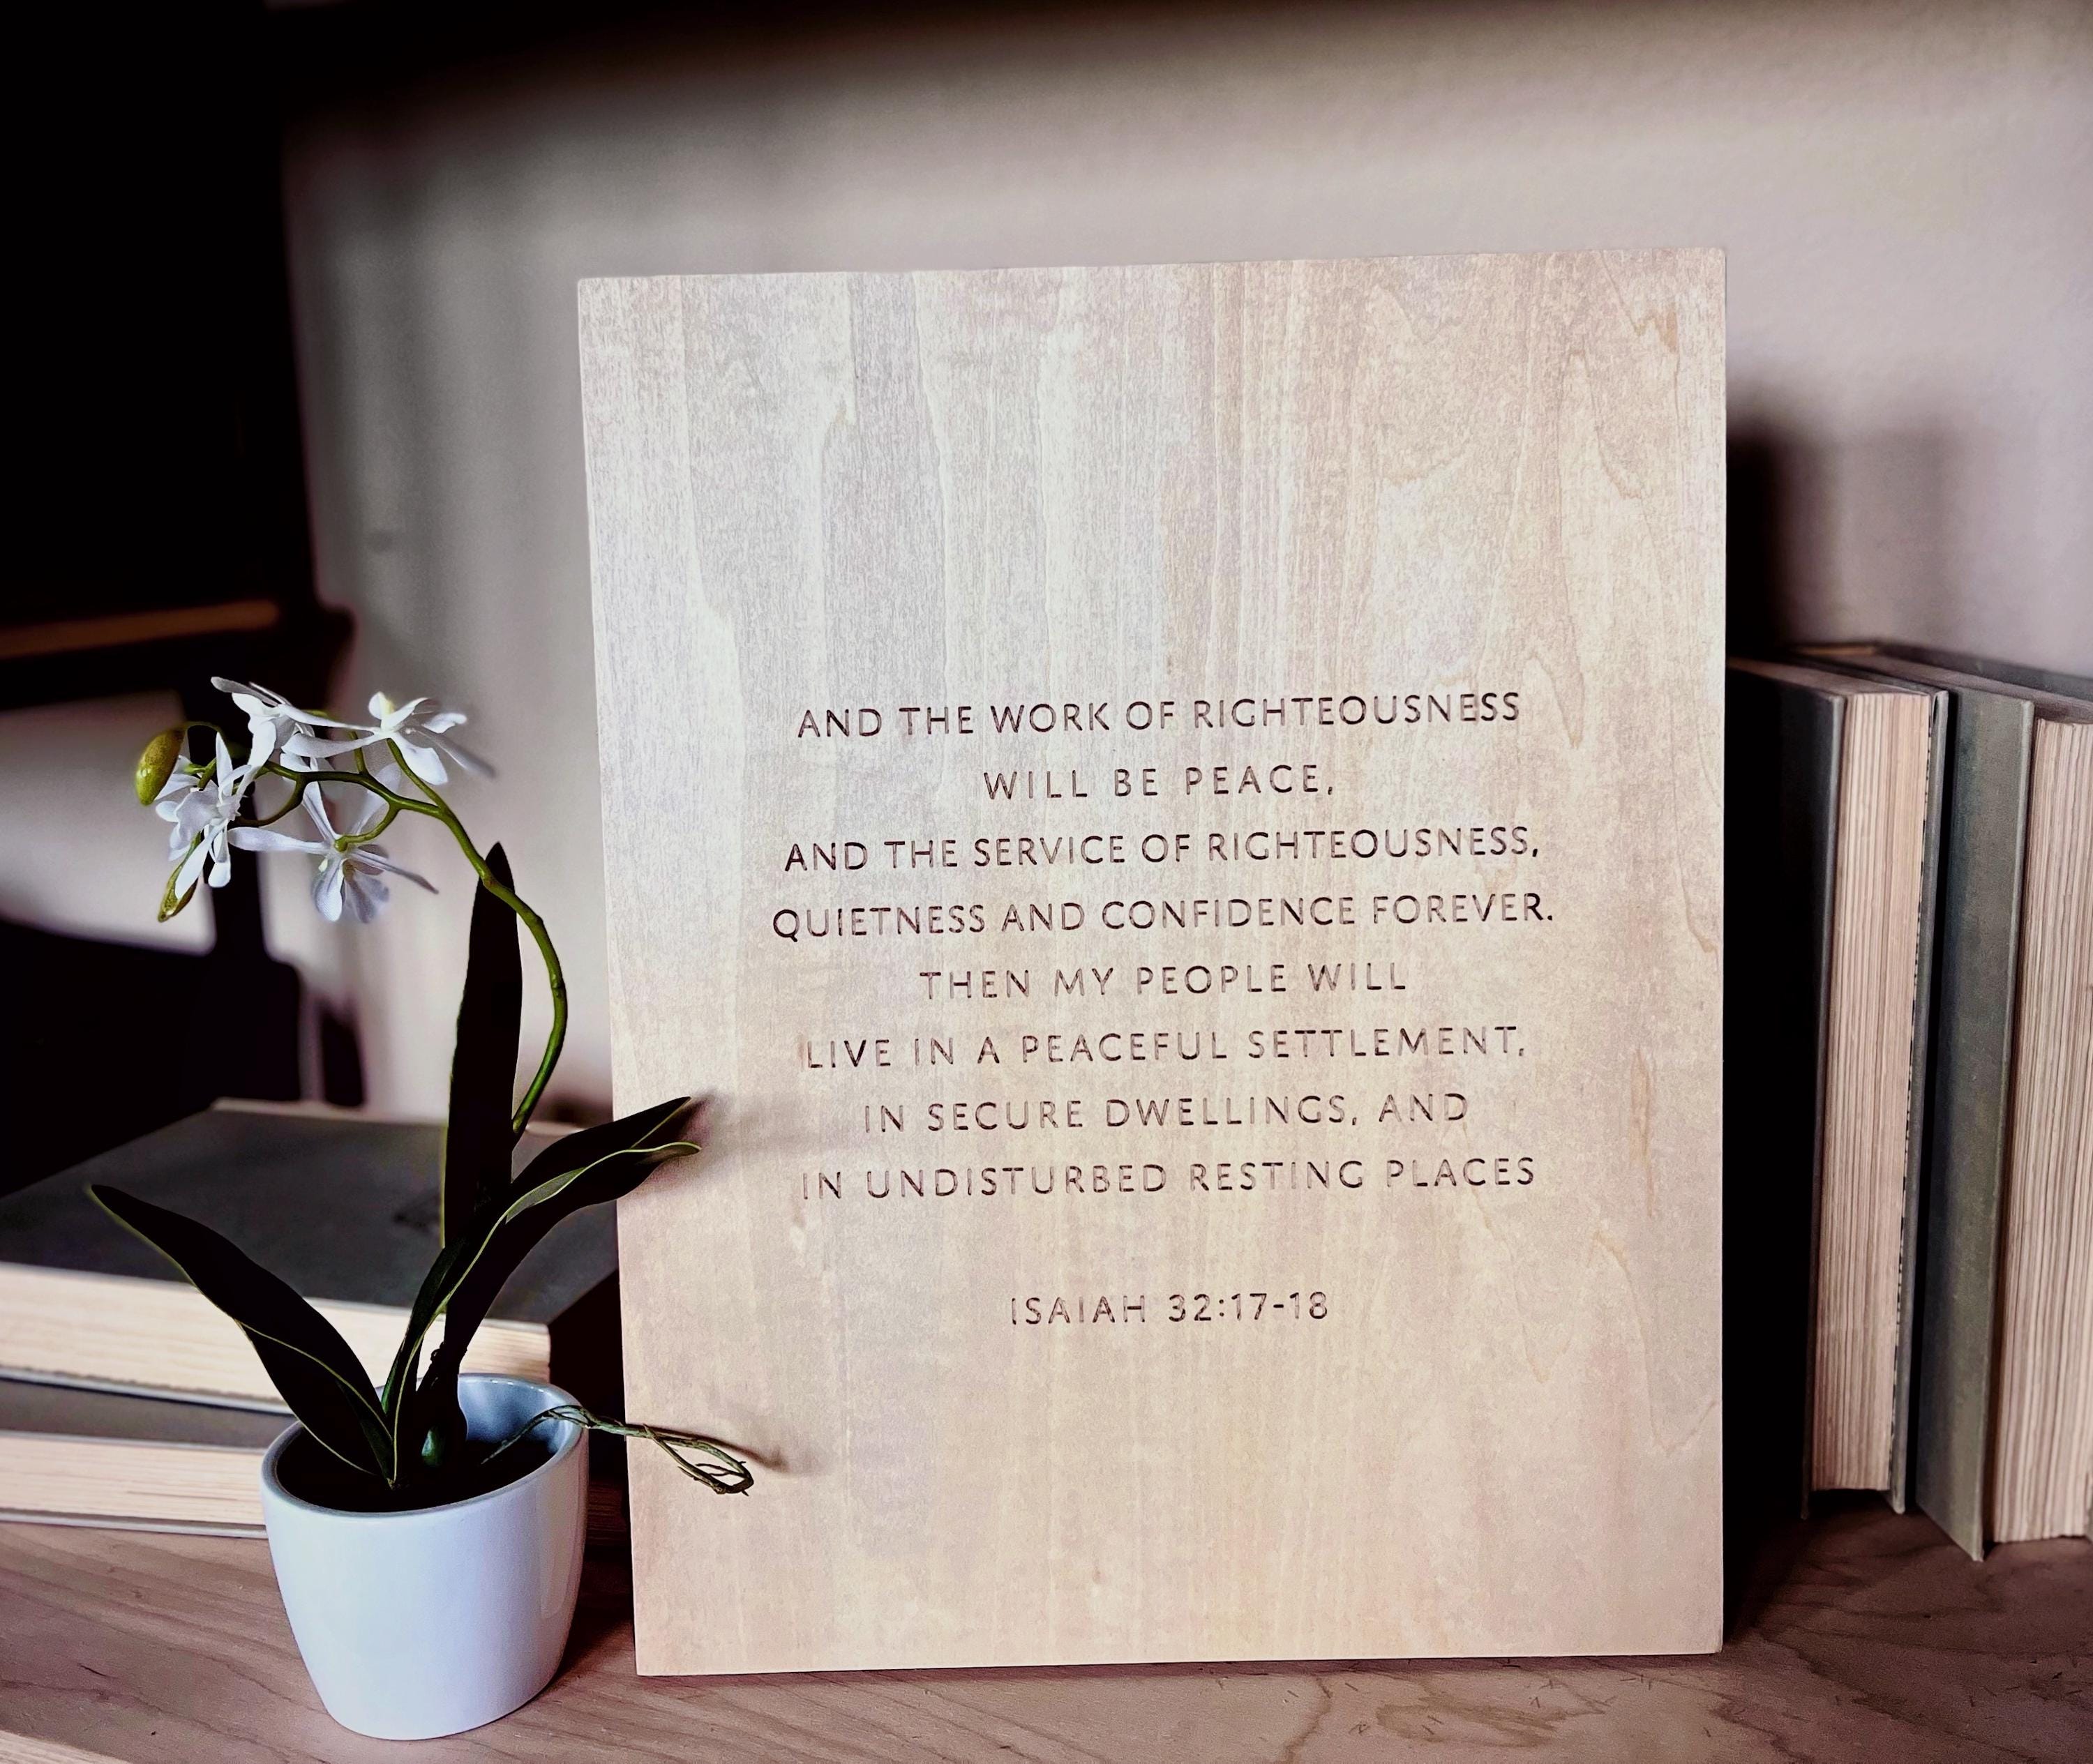 AND THE WORK OF RIGHTEOUSNESS
WILL BE PEACE,
AND THE SERVICE OF RIGHTEOUSNESS,
QUIETNESS AND CONFIDENCE FOREVER.
THEN MY PEOPLE WILL
LIVE IN A PEACEFUL SETTLEMENT,
IN SECURE DWELLINGS, AND
IN UNDISTURBED RESTING PLACES
ISAIAH 32:17-18